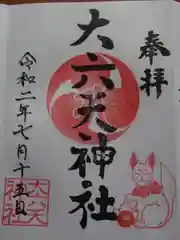 奉拝
大六天神社
令和二年七月十五日
大六天
神社